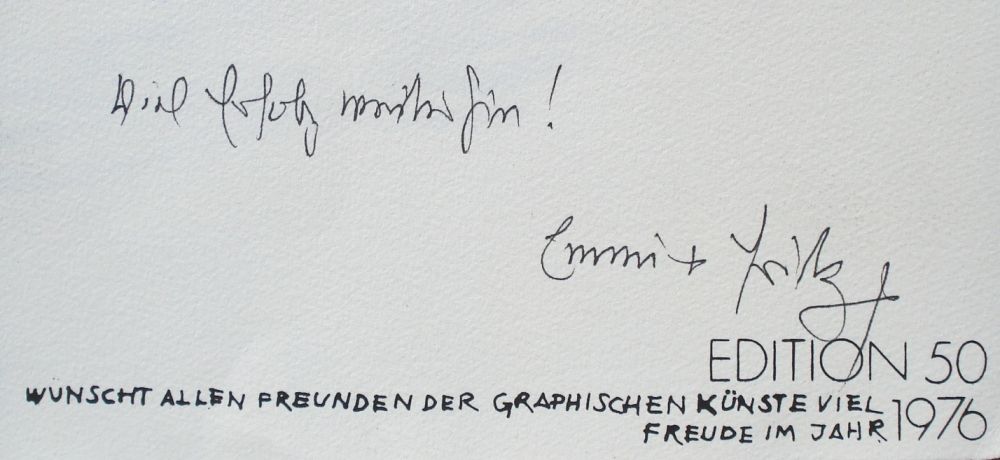 Viel Erfolg weiterhin!
Emmi + Fritz
EDITION 50
WÜNSCHT ALLEN FREUNDEN DER GRAPHISCHEN KÜNSTE VIEL
FREUDE IM JAHR 1976